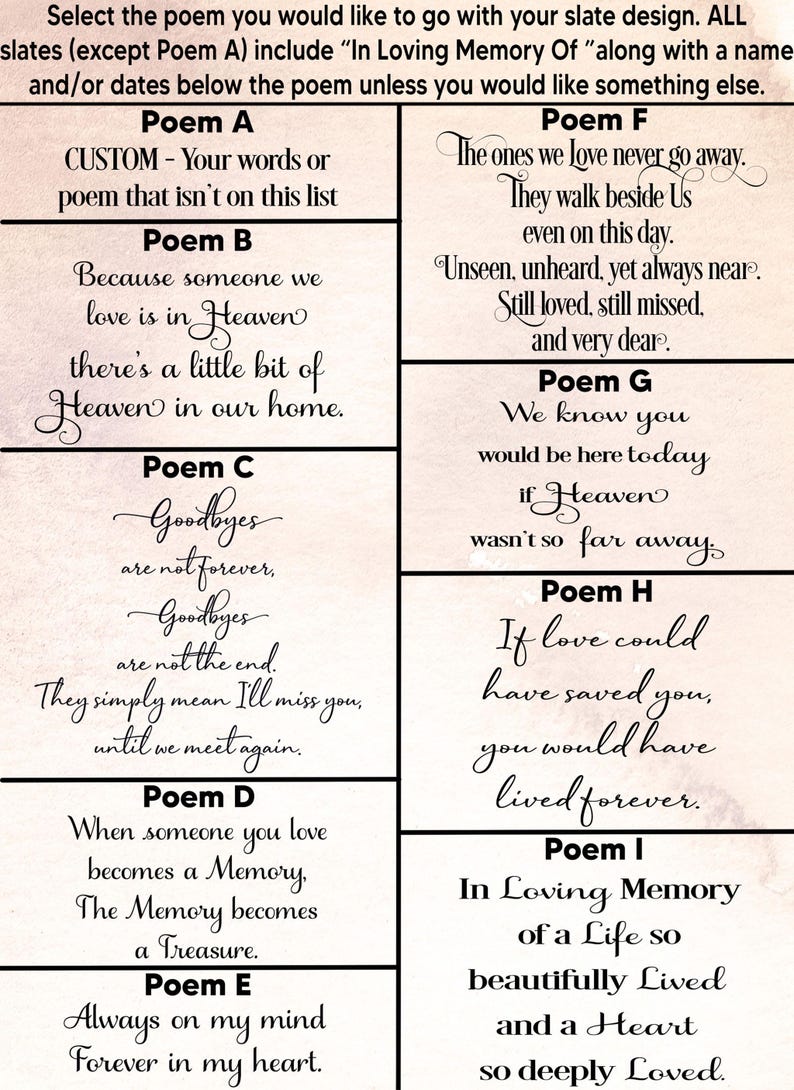 Select the poem you would like to go with your slate design. ALL
slates (except Poem A) include “In Loving Memory Of ”along with a name
and/or dates below the poem unless you would like something else.
Poem A
CUSTOM - Your words or
poem that isn't on this list
Poem B
Because someone we
love is in Heaven
there's a little bit of
Heaven in our home.
Poem C
Goodbyes
are not forever,
Goodbyes
are not the end.
They simply mean I'll miss you,
until we meet again.
Poem D
When someone you love
becomes a Memory,
The Memory becomes
a Treasure.
Poem E
Always on my mind
Forever in my heart.
Poem F
The ones we Love never go away.
They walk beside Us
even on this day.
Unseen, unheard, yet always near.
Still loved, still missed,
and very dear.
Poem G
We know you
would be here today
if Heaven
wasn't so far away.
Poem H
If love could
have saved you,
you would have
lived forever.
Poem I
In Loving Memory
of a Life so
beautifully Lived
and a Heart
so deeply Loved.